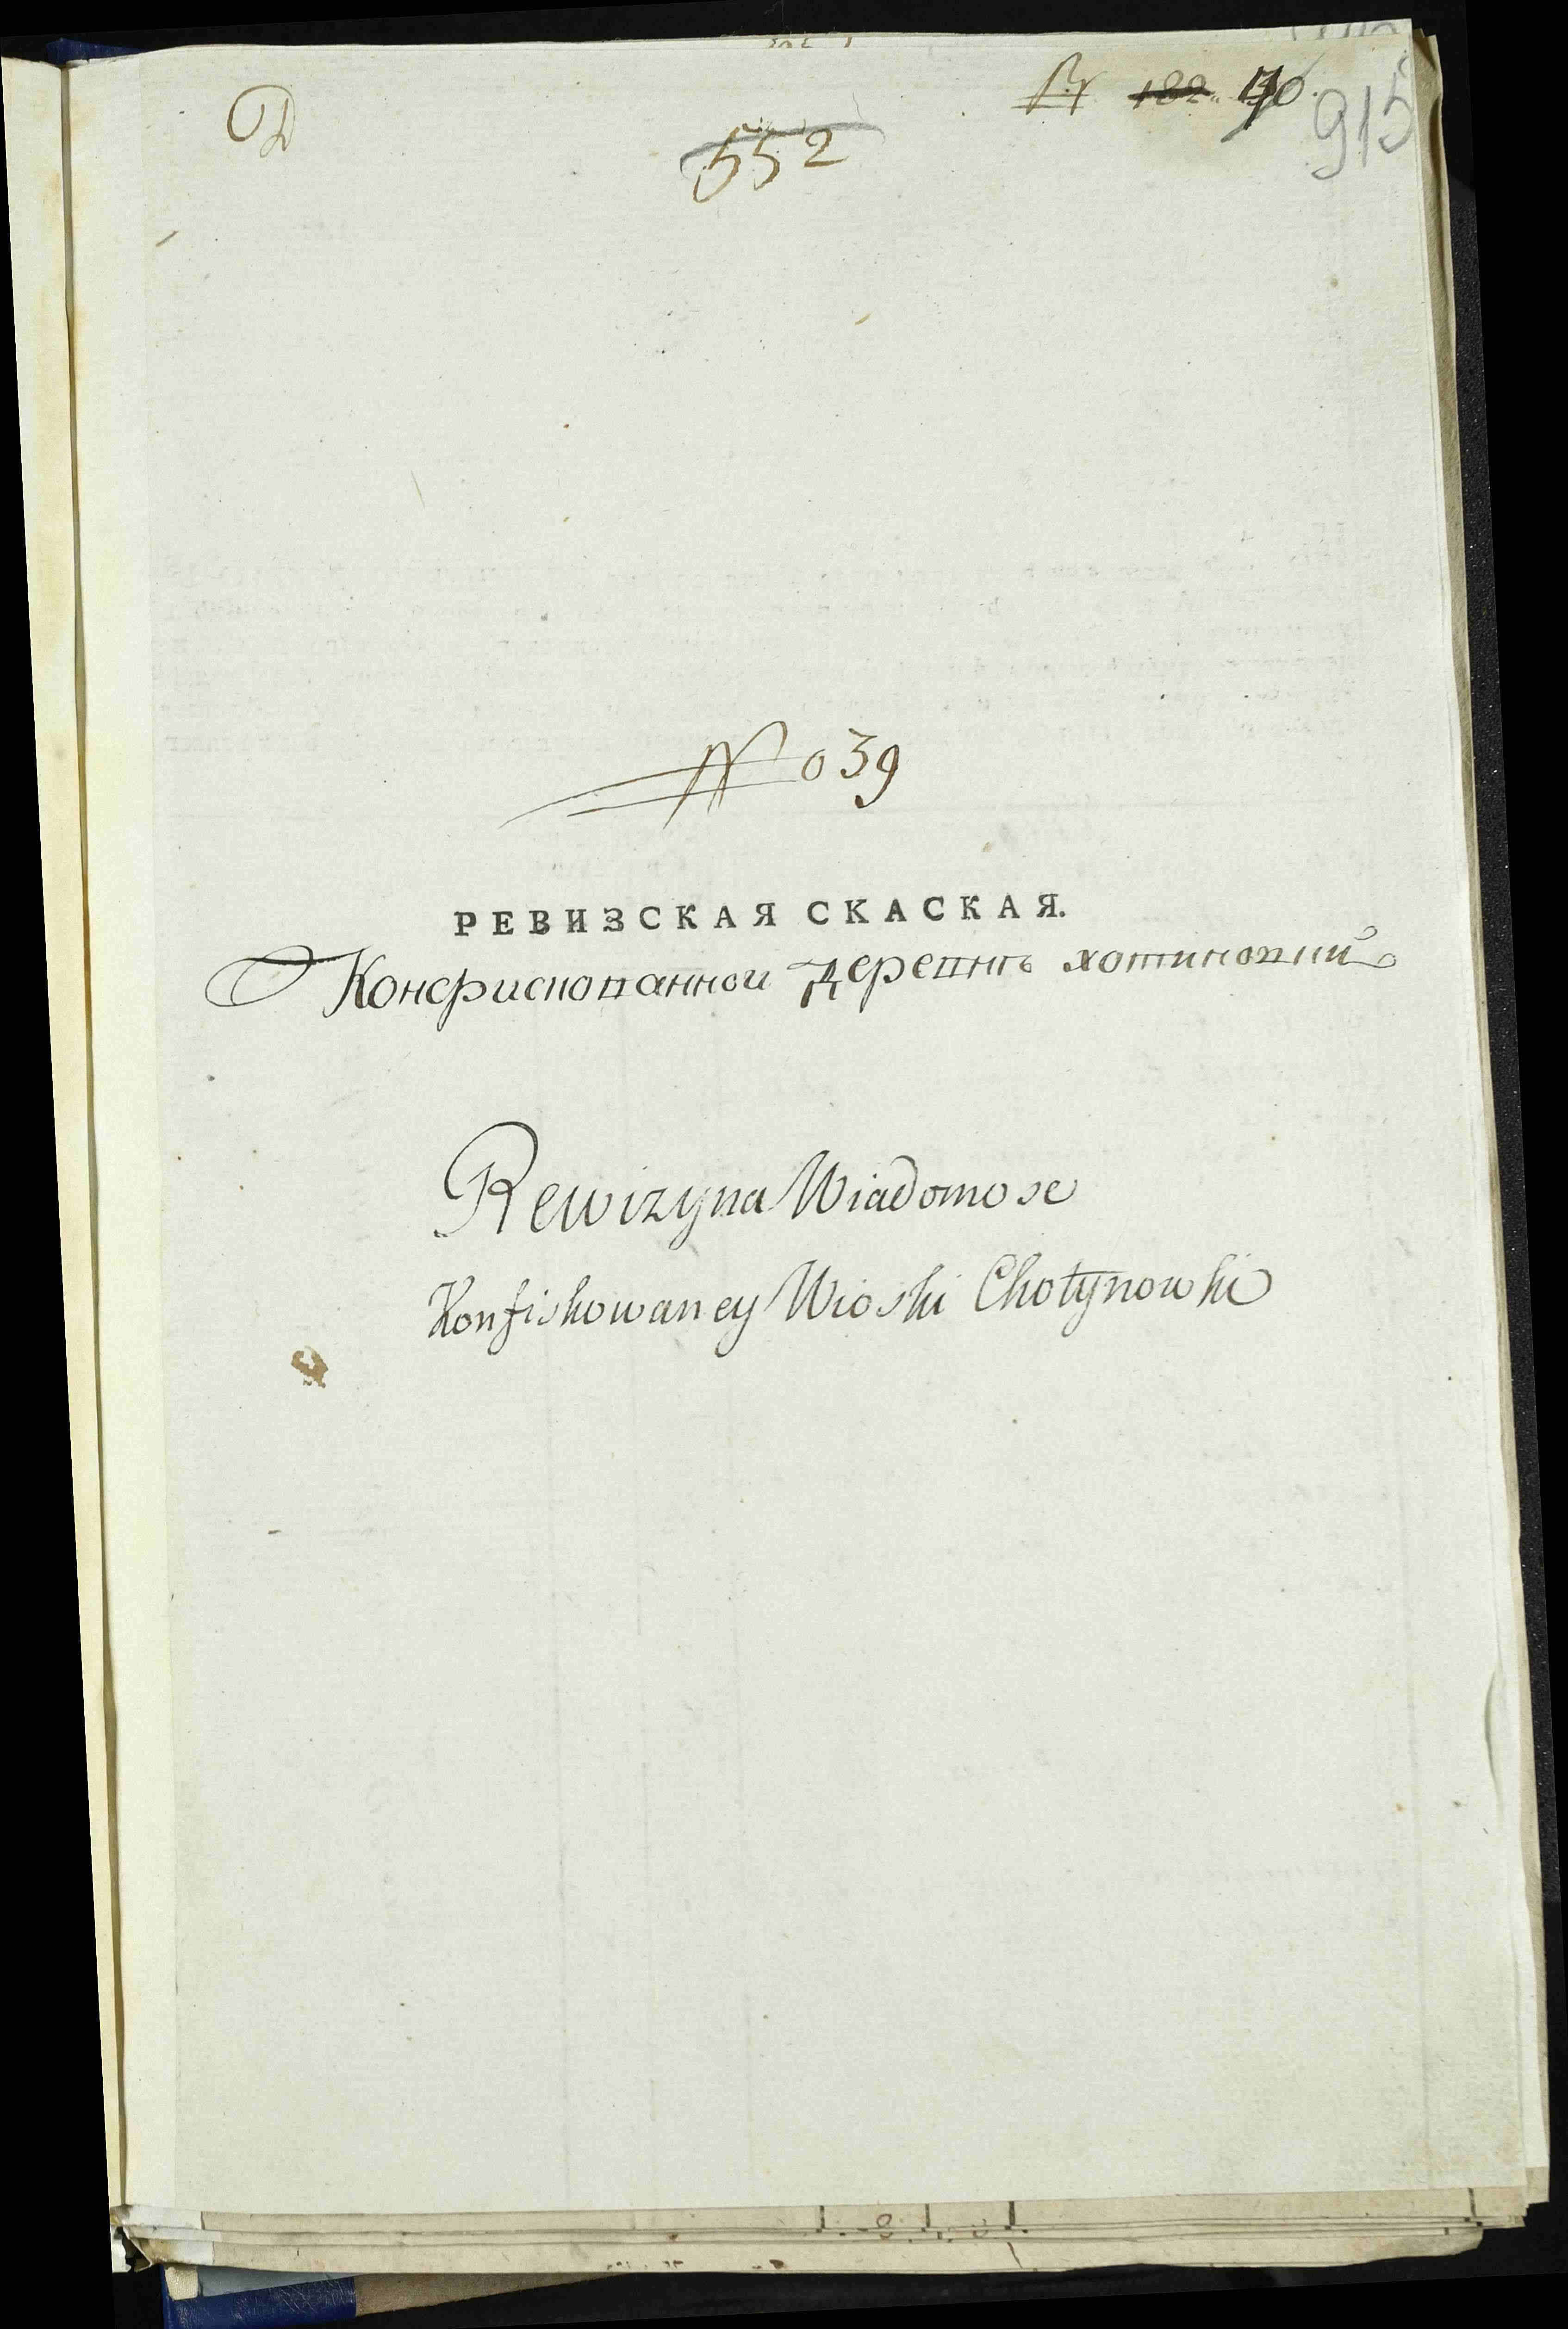 D
552
182 40.
915
№ 039
РЕВИЗСКАЯ СКАСКАЯ.
Конфискованной деревнѣ хотиновки
Rewizyna Wiadomosc
Konfiskowaney Wioski Chotynowki